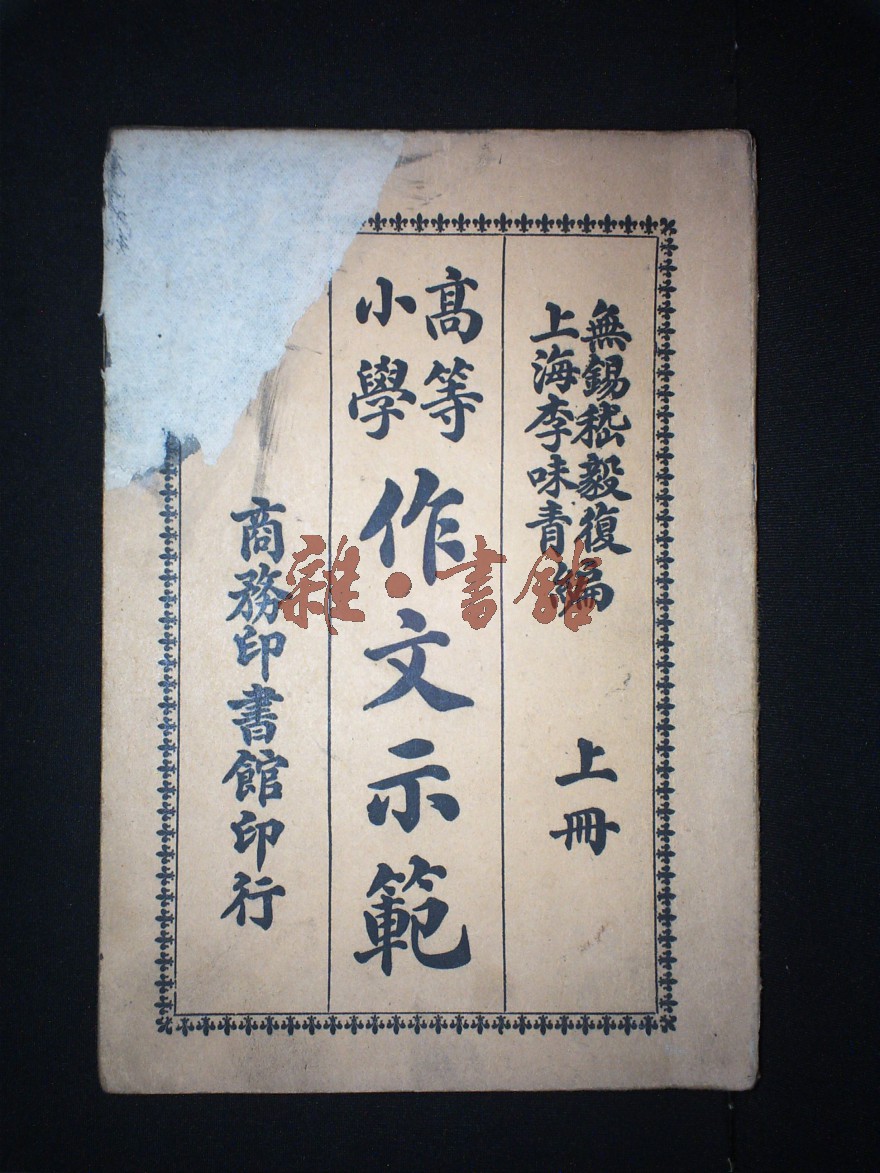 無錫嵇毅復
上海李味青編
上冊
高等
小學
作文示範
商務印書館印行
雜·書館